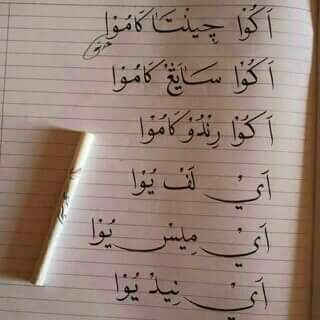 اَكُوْا چِينْتَا كَامُوْا
اَكُوْا سَايَڠْ كَامُوْا
اَكُوْا رِنْدُوْ كَامُوْا
اَيْ لَفْ يُوْا
اَيْ مِيسْ يُوْا
اَيْ نِيدْ يُوْا